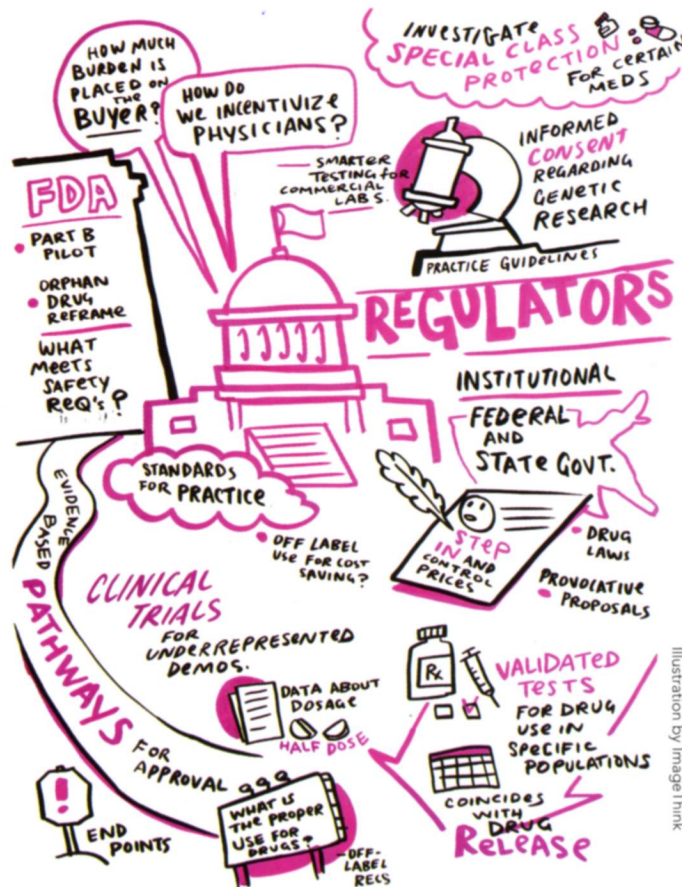 HOW MUCH
BURDEN IS
PLACED ON
THE
BUYER?
HOW DO
WE INCENTIVIZE
PHYSICIANS?
INVESTIGATE
SPECIAL CLASS
PROTECTION
FOR CERTAIN
MEDS
SMARTER
TESTING FOR
COMMERCIAL
LABS.
INFORMED
CONSENT
REGARDING
GENETIC
RESEARCH
PRACTICE GUIDELINES
FDA
PART B
PILOT
ORPHAN
DRUG
REFRAME
WHAT
MEETS
SAFETY
REQ'S?
REGULATORS
INSTITUTIONAL
FEDERAL
AND
STATE GOVT.
STANDARDS
FOR PRACTICE
OFF LABEL
USE FOR COST
SAVING?
STEP
IN AND
CONTROL
PRICES
DRUG
LAWS
PROVOCATIVE
PROPOSALS
EVIDENCE
BASED
PATHWAYS
FOR
APPROVAL
CLINICAL
TRIALS
FOR
UNDERREPRESENTED
DEMOS.
DATA ABOUT
DOSAGE
HALF DOSE
Rx
VALIDATED
TESTS
FOR DRUG
USE IN
SPECIFIC
POPULATIONS
COINCIDES
WITH DRUG
RELEASE
!
END
POINTS
WHAT IS
THE PROPER
USE FOR
DRUGS?
OFF-
LABEL
RECS
Illustration by ImageThink